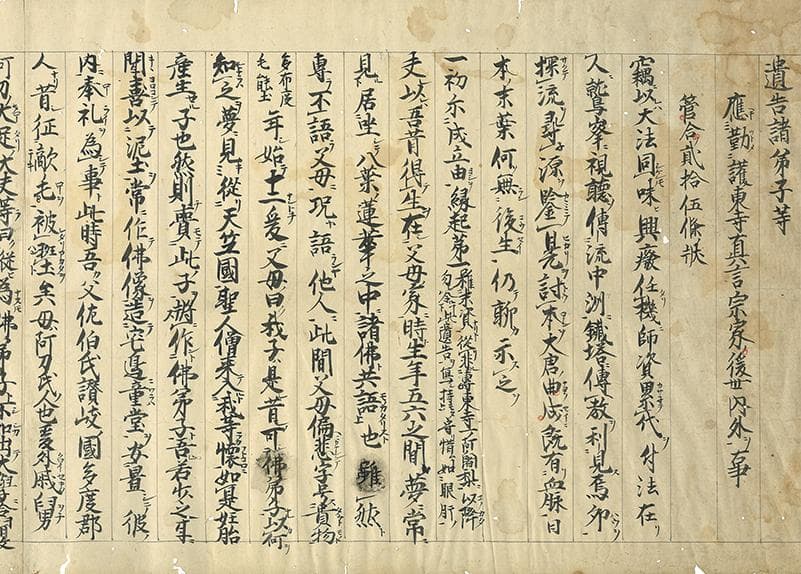 遺告諸弟子等
應勤護東寺真言宗家後世内外事
管合貳拾伍條狀
竊以大法同味興廢任機師資累代付法在
人鷲峯視聽傳流中洲鐵塔傳教利見焉卯
探流尋源鑒晃討本大唐曲成既有血脉日
本末葉何無後生仍聊示之
一初示成立由緣起第一
夫以吾昔得生在父母家時生年五六之間夢常
見居坐八葉蓮華之中諸佛共語也雖然
專不語父母况語他人此間父母偏悲字号貴物
多布度毛能土年始十二爰父母曰我子是昔可佛弟子以何
知之夢見從天竺國聖人僧来入我等懷如是妊胎
產生子也然則賣此子將作佛弟子吾若少之耳
聞喜以泥土常作佛像造宅邊童堂安置彼
内奉礼為事此時吾父佐伯氏讃岐國多度郡
人昔征敵毛被班土矣母阿刀氏人也爰外戚舅
阿刀大足大夫等曰從為佛弟子不如出大學令習